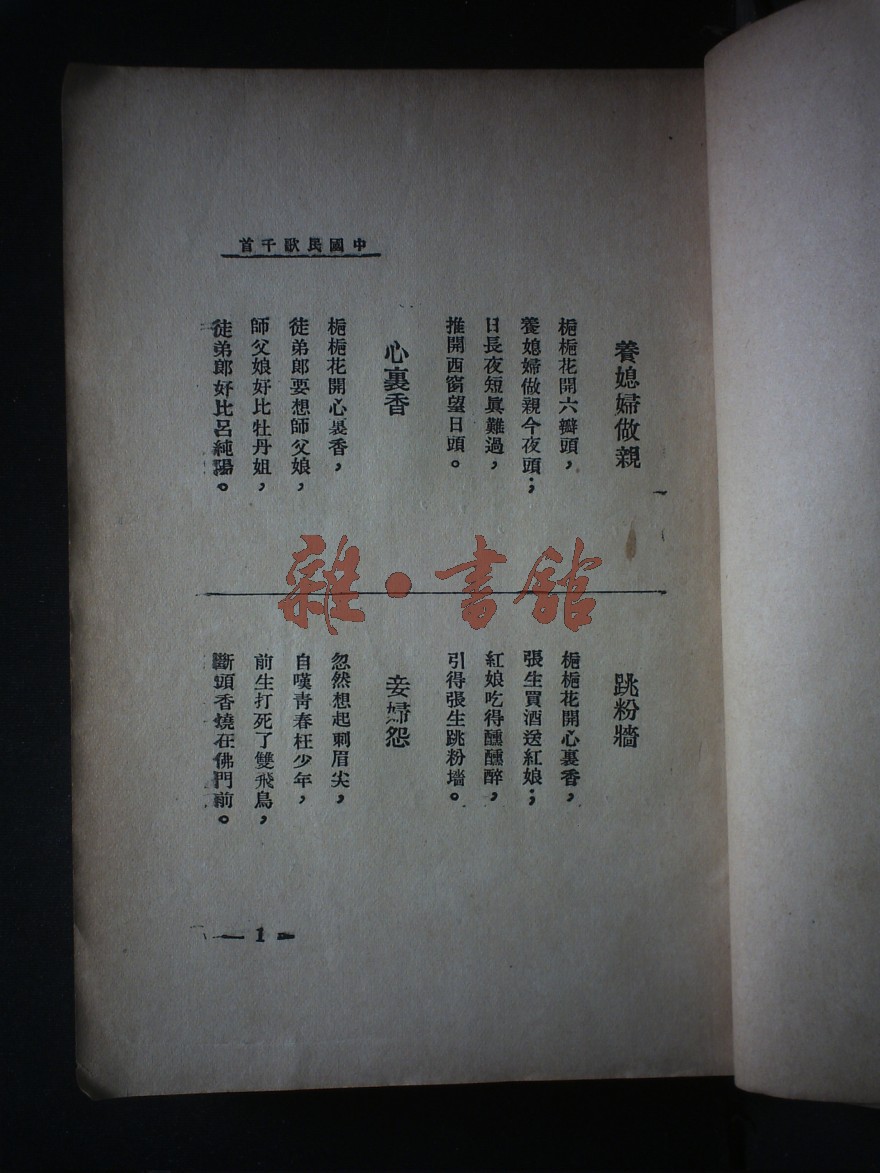 中國民歌千首
養媳婦做親
梔梔花開六瓣頭，
養媳婦做親今夜頭；
日長夜短眞難過，
推開西窗望日頭。
心裏香
梔梔花開心裏香，
徒弟郎要想師父娘，
師父娘好比牡丹姐，
徒弟郎好比呂純陽。
跳粉牆
梔梔花開心裏香，
張生買酒送紅娘；
紅娘吃得醺醺醉，
引得張生跳粉墻。
妾婦怨
忽然想起刺眉尖，
自嘆靑春枉少年，
前生打死了雙飛鳥，
斷頭香燒在佛門前。
— 1 —
雜·書館